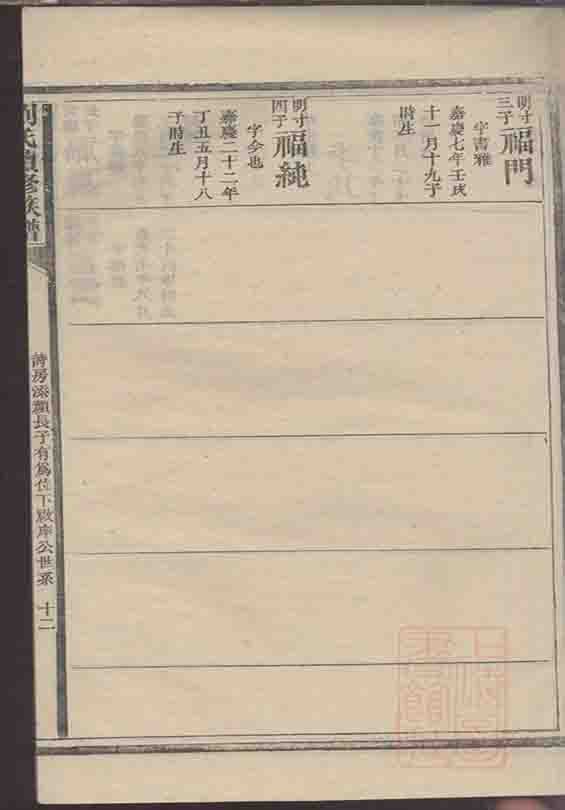 明寸三子福門
字書雅
嘉慶七年壬戌
十一月十九子
時生
明寸四子福純
字今也
嘉慶二十二年
丁丑五月十八
子時生
氏續修族譜
房添顏長子有為位下啟岸公世系 十二